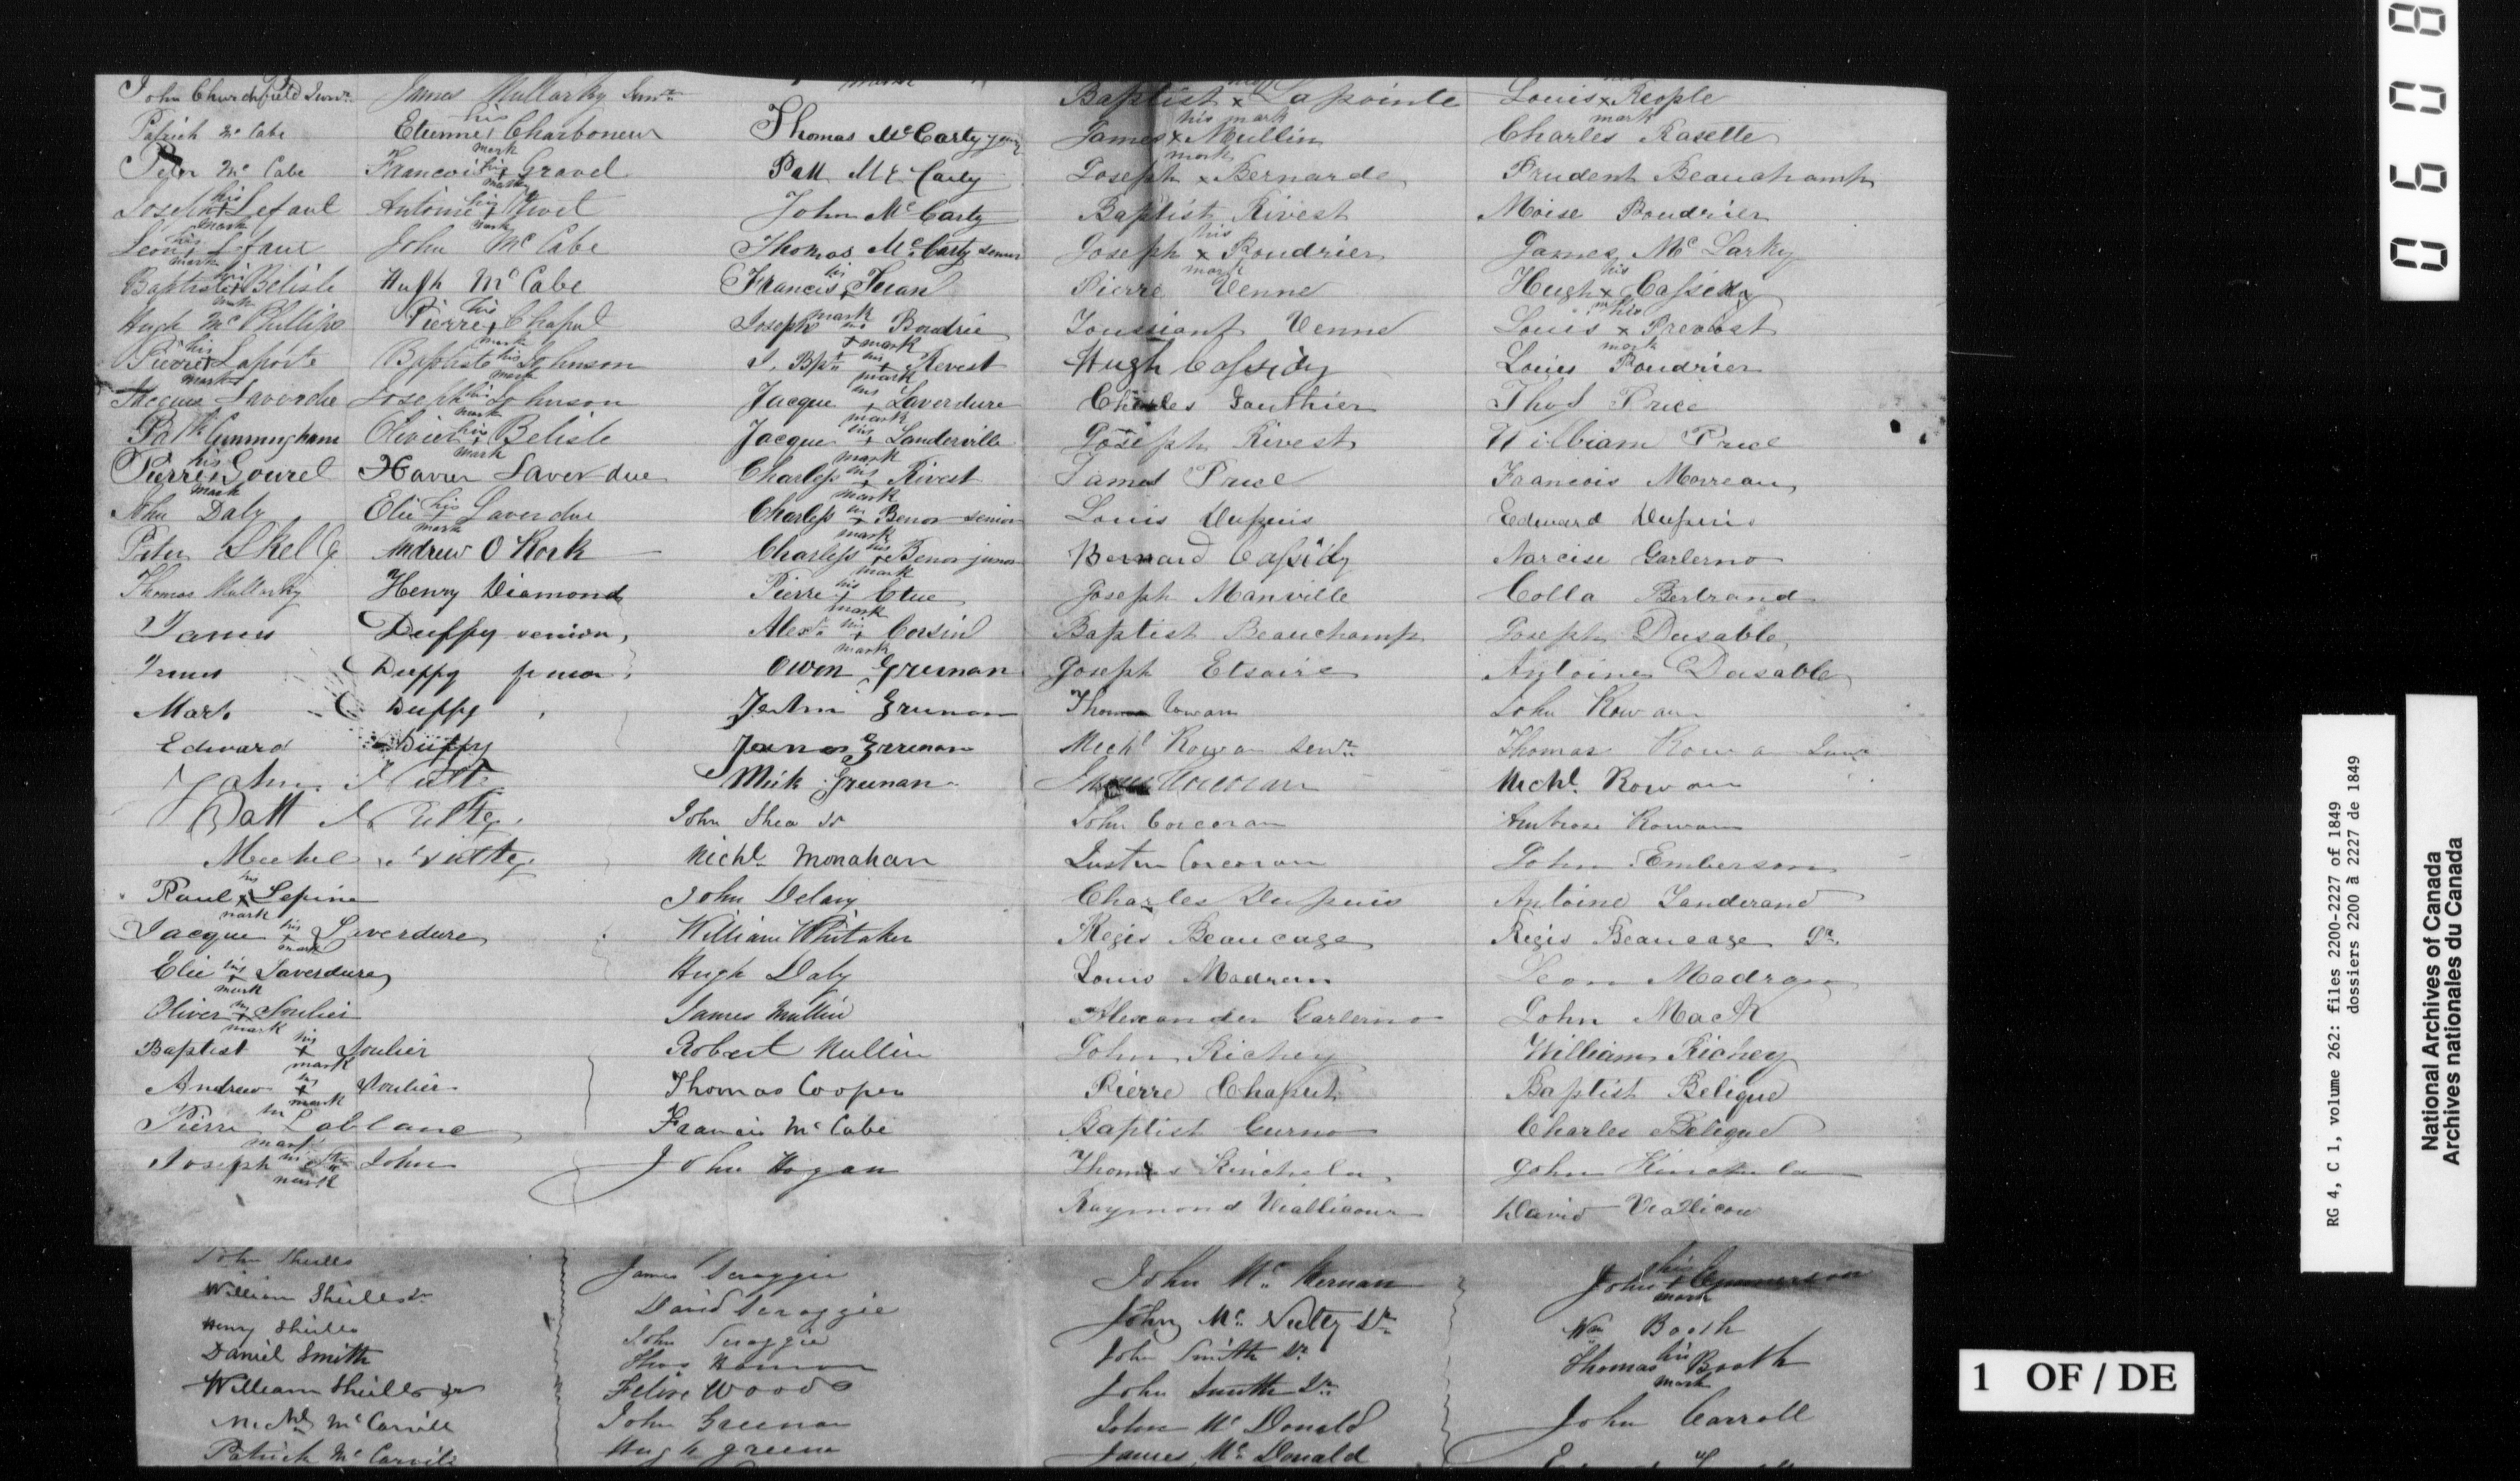 John Churchfield Junr
Patrick Mc Cabe
Peter Mc Cabe
Joseph his + mark Lefaul
Leon his + mark Lefaul
Baptiste his + mark Belisle
Hugh Mc Phillips
Pierre his + mark Laporte
Jacques Laverdue
Patk Cunningham
Pierre his x mark Gourel
Daly
Peter Skelly
Thomas Mullarky
James Duffy senior
James Duffy junior
Mark Duffy
Edward Duffy
John
Patt
Michel
Paul his x mark Lepine
Jacque his + mark Laverdure
Elie his + mark Laverdure
Oliver his + mark Soulier
Baptist his + mark Soulier
Andrew his + mark Soulier
Pierre his mark Lablanc
Joseph his mark St John
James Mullarky Senr
Etienne his + mark Charboneur
Francois his + mark Gravel
Antoine his + mark
John Mc Cabe
Hugh Mc Cabe
Pierre his + mark Chaput
Baptiste his mark Johnson
Joseph his mark Johnson
Olivier his + mark Belisle
Xavier Laverdue
Elie his + mark Laverdue
Andrew O Rork
Henry Diamond
mark
Thomas Mc Carty young
Patt Mc Carty
John Mc Carty
Thomas Mc Carty senior
Francis his + mark
Joseph his + mark Boudrie
J. Bpte his + mark Revest
Jacque his + mark Laverdure
Jacque his + mark Landerville
Charless his + mark Rivest
Charless his + mark Benor senior
Charless his + mark Benor junior
Pierre his + mark Clue
Alexr his + mark Corsin
Owen Greenan
John Greenan
James Greenan
Mick Greenan
John Shea Sr
Michl Monahan
John Delany
William Whitaker
Hugh Daly
James Mullin
Robert Mullin
Thomas Cooper
Francis Mc Cabe
John Hogan
Baptist x Lapointe
his mark
James x Mullin
mark
Joseph x Bernarde
Baptist Rivest
Joseph his x mark Roudrier
Pierre Venne
Toussiant Venne
Hugh Cassidy
Charles Gauthier
Joseph Rivest
James Price
Louis Dupuis
Bernard Cassidy
Joseph Manville
Baptist Beauchamp
Joseph Etsaire
Thomas Cowan
Michl Rowan Senr
John Corcoran
Justin Corcoran
Charles Dupuis
Regis Beaucage
Louis Madran
Alexander Garlerno
John Richey
Pierre Chaput
Baptist Gurno
Thomas Kinchela
Raymond Viallicour
Louis x Reople
mark
Charles Rasette
Prudent Beauchamp
Moise Boudrier
James Mc Larky
Hugh his x Cassidy
Louis his x mark Prevost
Louis Boudrier
Thos Price
William Price
Francois Morreau
Edward Dupuis
Narcise Garlerno
Colla Bertrand
Joseph Dusable
Antoine Dusable
John Rowan
Thomas Rowan Junr
Michl Rowan
Ambrose Rowan
John Emberson
Antoine Landerand
Regis Beaucage Jr
Leon Madran
John Mack
William Richey
Baptist Beligue
Charles Beligue
John Kinchela
David Viallicour
John Sheills
William Sheills Sr
Henry Sheills
Daniel Smith
William Sheills Jr
Michl Mc Carvill
Patrick Mc Carvill
James Scroggie
David Scroggie
John Scroggie
Felix Woods
John Greenan
Hugh Greenan
John Mc Kernan
John Mc Nulty Sr
John Smith Sr
John Smith Jr
John Mc Donald
James Mc Donald
John his + mark
Wm Booth
Thomas his mark Booth
John Carroll
0 6 0 8
RG 4, C 1, volume 262: files 2200-2227 of 1849
dossiers 2200 à 2227 de 1849
National Archives of Canada
Archives nationales du Canada
1 OF / DE